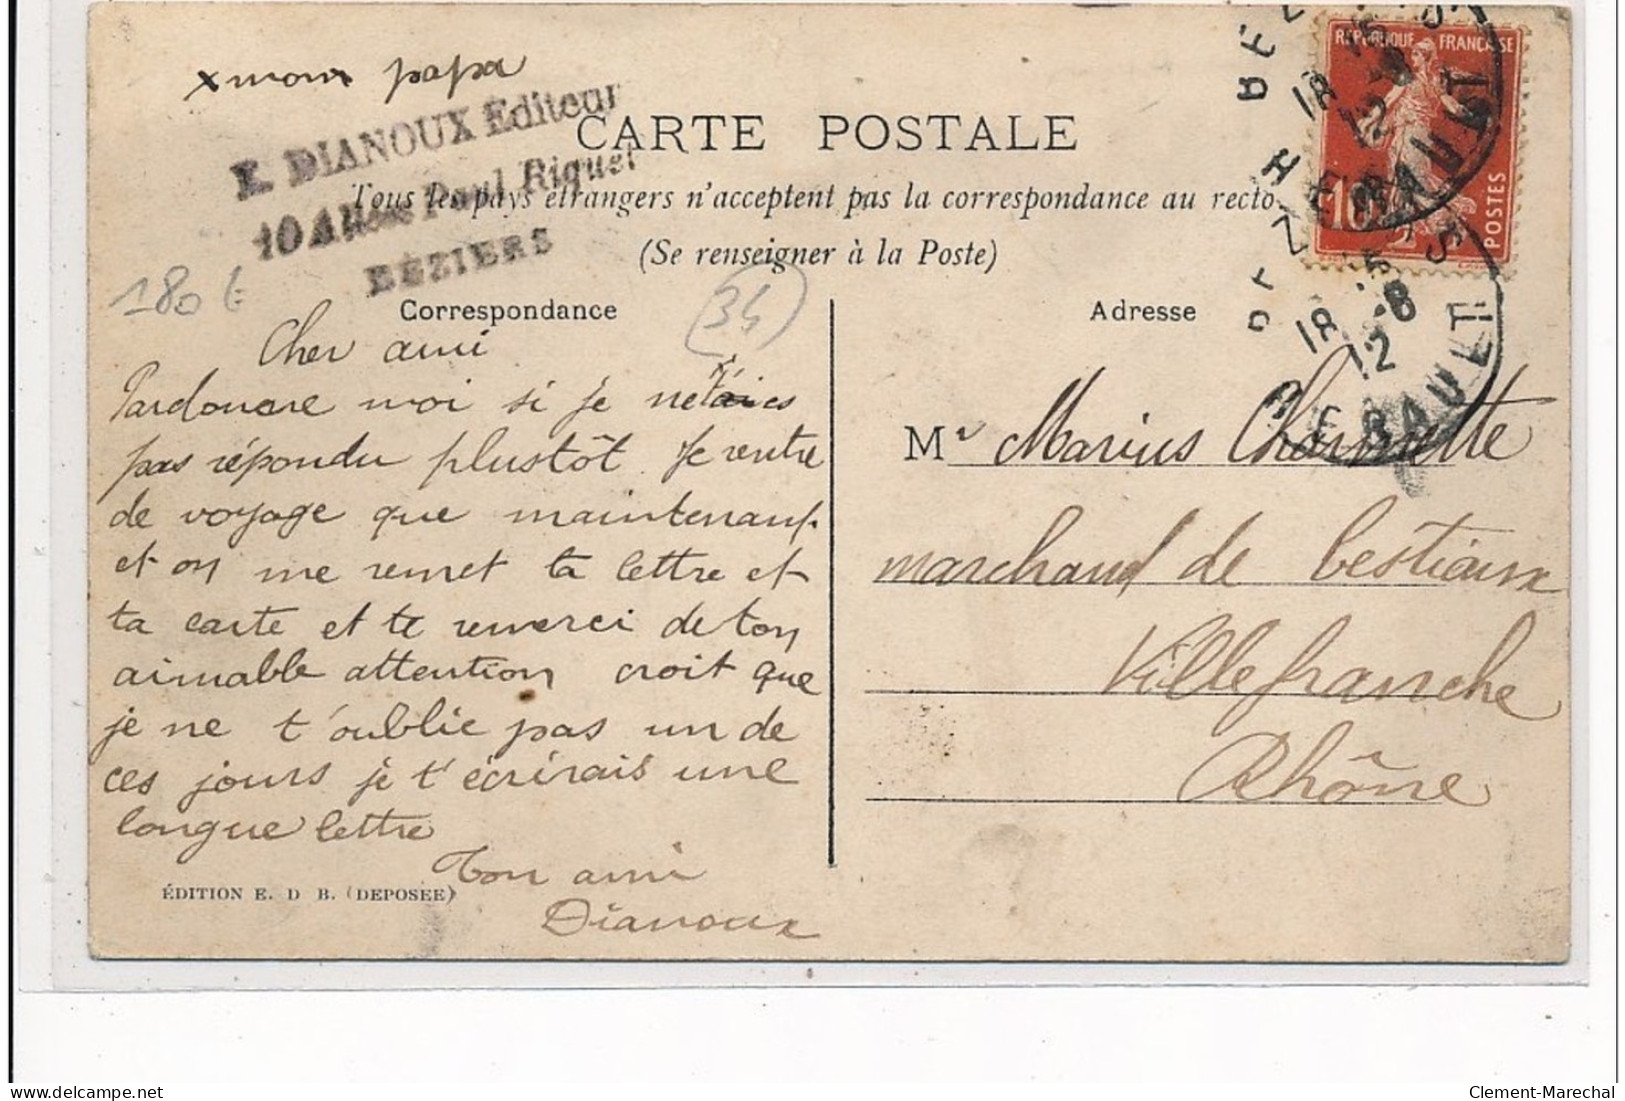 x mon papa
E. DIANOUX Editeur
10 Allées Paul Riquet
BÉZIERS
CARTE POSTALE
Tous les pays étrangers n'acceptent pas la correspondance au recto.
(Se renseigner à la Poste)
180 E
(34)
Correspondance
Cher ami
Pardonare moi si je ne t'ais
pas répondu plustôt Je rentre
de voyage que maintenant
et on me remet ta lettre et
ta carte et te remerci de ton
aimable attention croit que
je ne t'oublie pas un de
ces jours je t'écrirais une
longue lettre
Ton ami
Dianoux
ÉDITION E. D B. (DEPOSEE)
Adresse
Mr Marius Charmette
marchand de bestiaux
Villefranche
Rhône
RÉPUBLIQUE FRANÇAISE
10
POSTES
BÉZIERS
18 15
-8
12
HERAULT
BÉZIERS
18 15
-8
12
HERAULT
Clement-Marechal